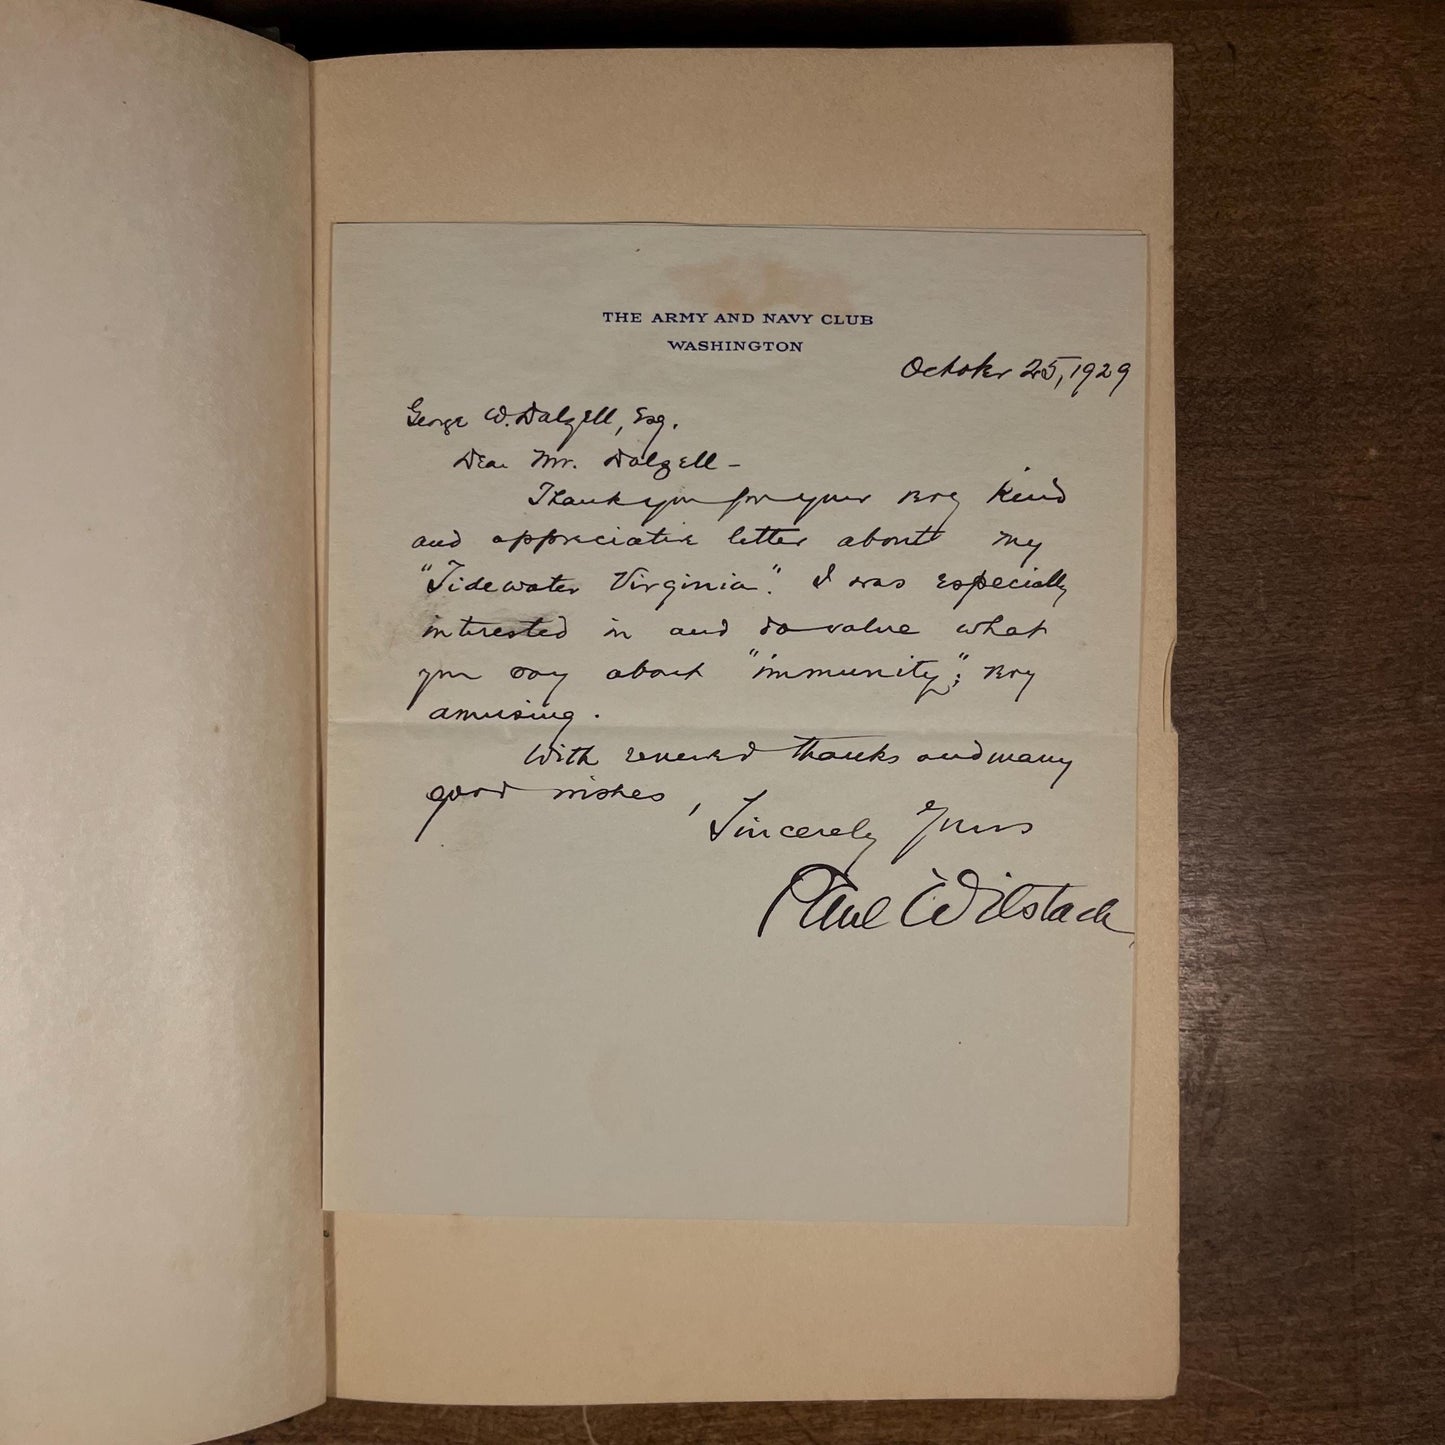 THE ARMY AND NAVY CLUB
WASHINGTON
October 25, 1929
George W. Dalzell, Esq.
Dear Mr. Dalzell –
Thank you for your very kind
and appreciative letter about my
"Tidewater Virginia". I was especially
interested in and do value what
you say about "immunity"; very
amusing.
With renewed thanks and many
good wishes,
Sincerely Yours
Paul Wilstach